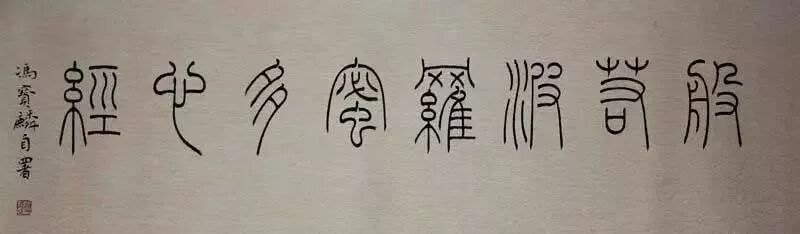 般若波羅蜜多心經
馮寶麟自署